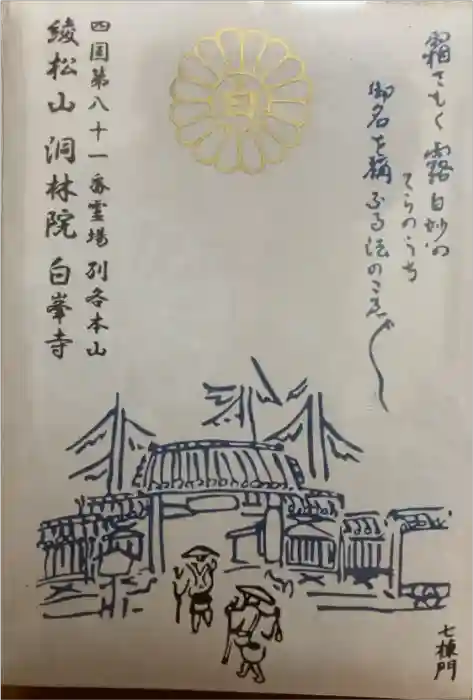 霜さむく露白妙の
てらのうち
御名を稱ふる法のこゑ〴〵
白
四国第八十一番霊場 別格本山
綾松山 洞林院 白峯寺
七棟門